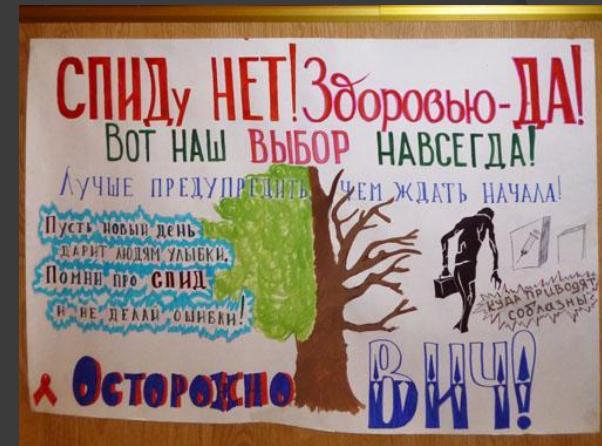 СПИДу НЕТ! Здоровью-ДА!
ВОТ НАШ ВЫБОР НАВСЕГДА!
ЛУЧШЕ ПРЕДУПРЕДИТЬ, ЧЕМ ЖДАТЬ НАЧАЛА!
Пусть новый день
дарит людям улыбки.
Помни про СПИД
и не делай ошибки!
КУДА ПРИВОДЯТ
СОБЛАЗНЫ
ОСТОРОЖНО
ВИЧ!